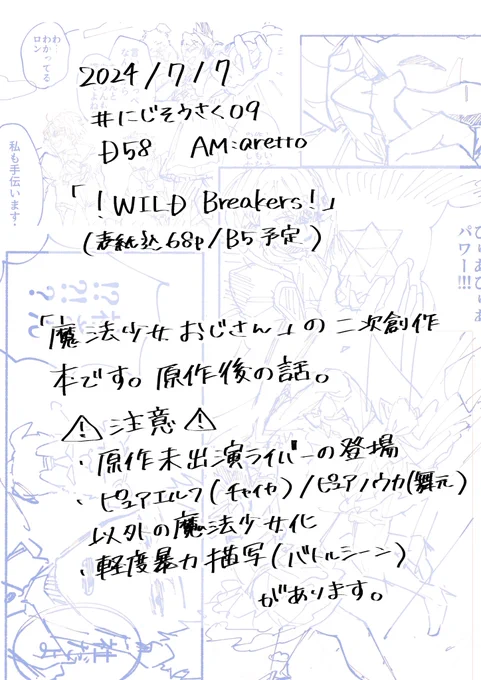 わ…
わかってる
ロン
私も手伝います。
2024/7/7
#にじそうさく09
D58 AM:aretto
「！WILD Breakers！」
(表紙込68p/B5予定)
ぴゅあぴゅあ
パワー!!!
!?
?!
?
「魔法少女おじさん」の二次創作
本です。原作後の話。
⚠注意⚠
・原作未出演ライバーの登場
・ピュアエルフ(チャイカ)/ピュアノウカ(舞元)
以外の魔法少女化
・軽度暴力描写(バトルシーン)
があります。